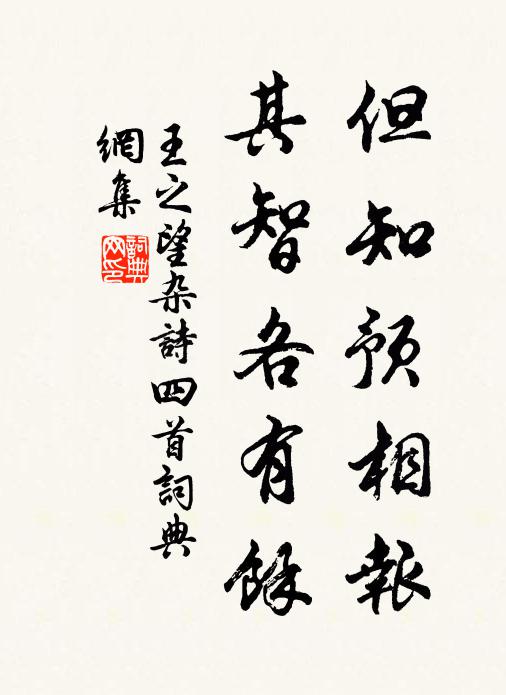 但知預相報
其智各有餘
王之望杂詩四首詞典
網集
詞典
网印